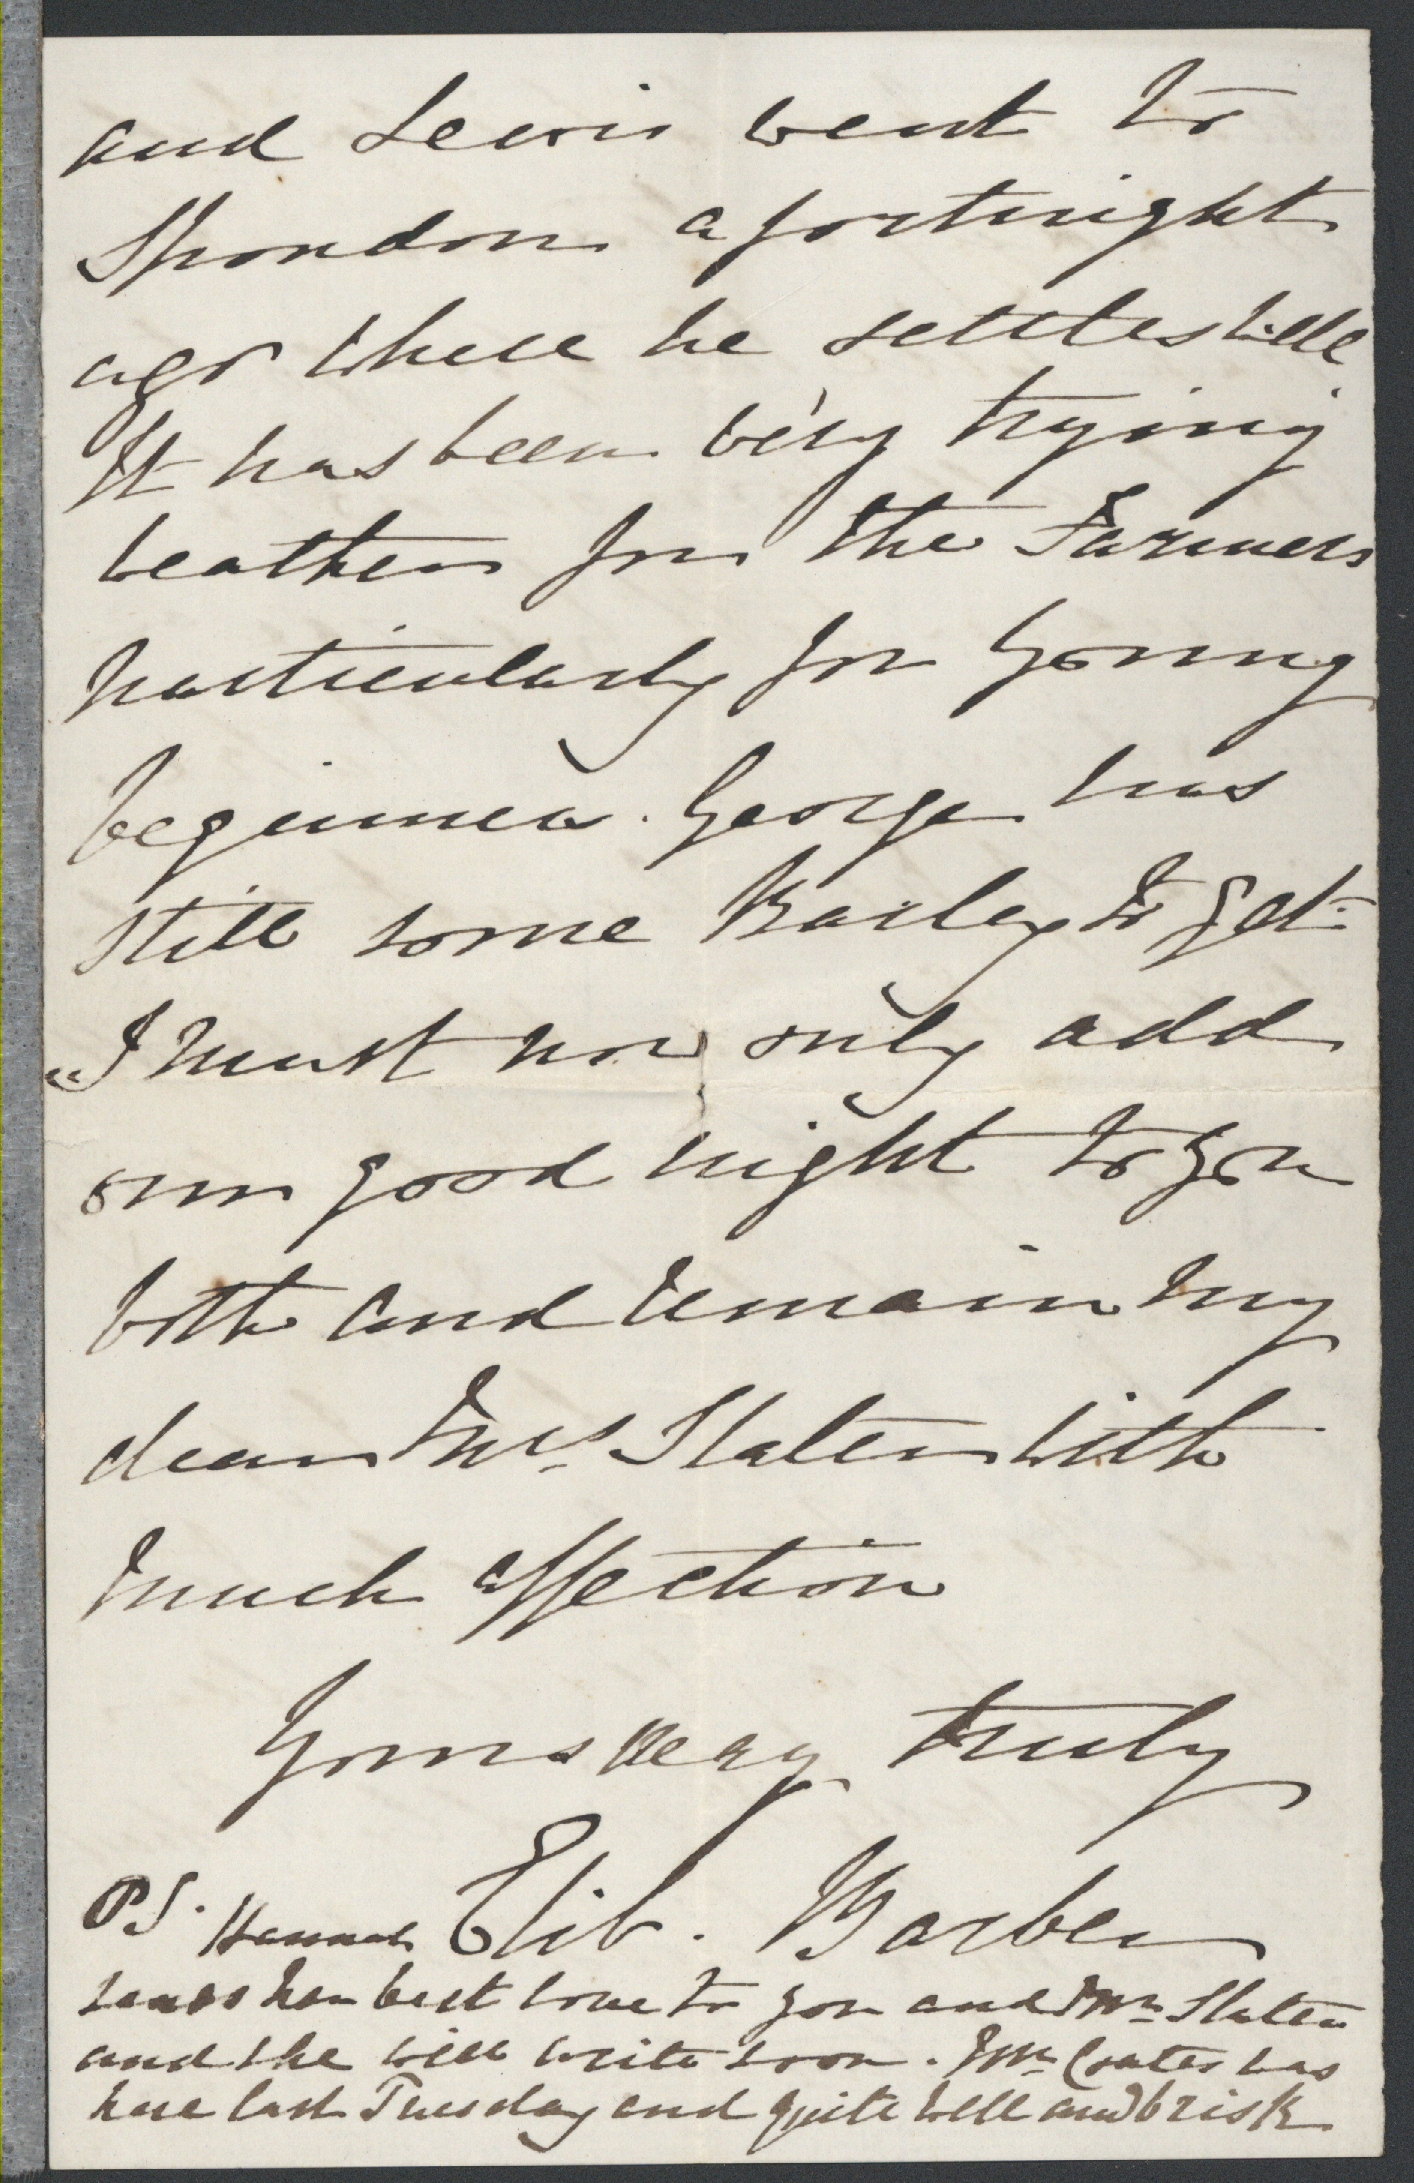 and Lewis went to
Spondon a fortnight
ago where he settles well
It has been very trying
weather for the Farmers
particularly for young
beginners. George has
still some Barley to get.
I must now only add
our good night to you
both and remain my
dear Mrs. Slater with
much affection
Yours very truly
Elib. Barber
PS. Hannah
sends her best love to you and Mr Slater
and she will write soon. Mr Coates was
here last Tuesday and quite well and brisk